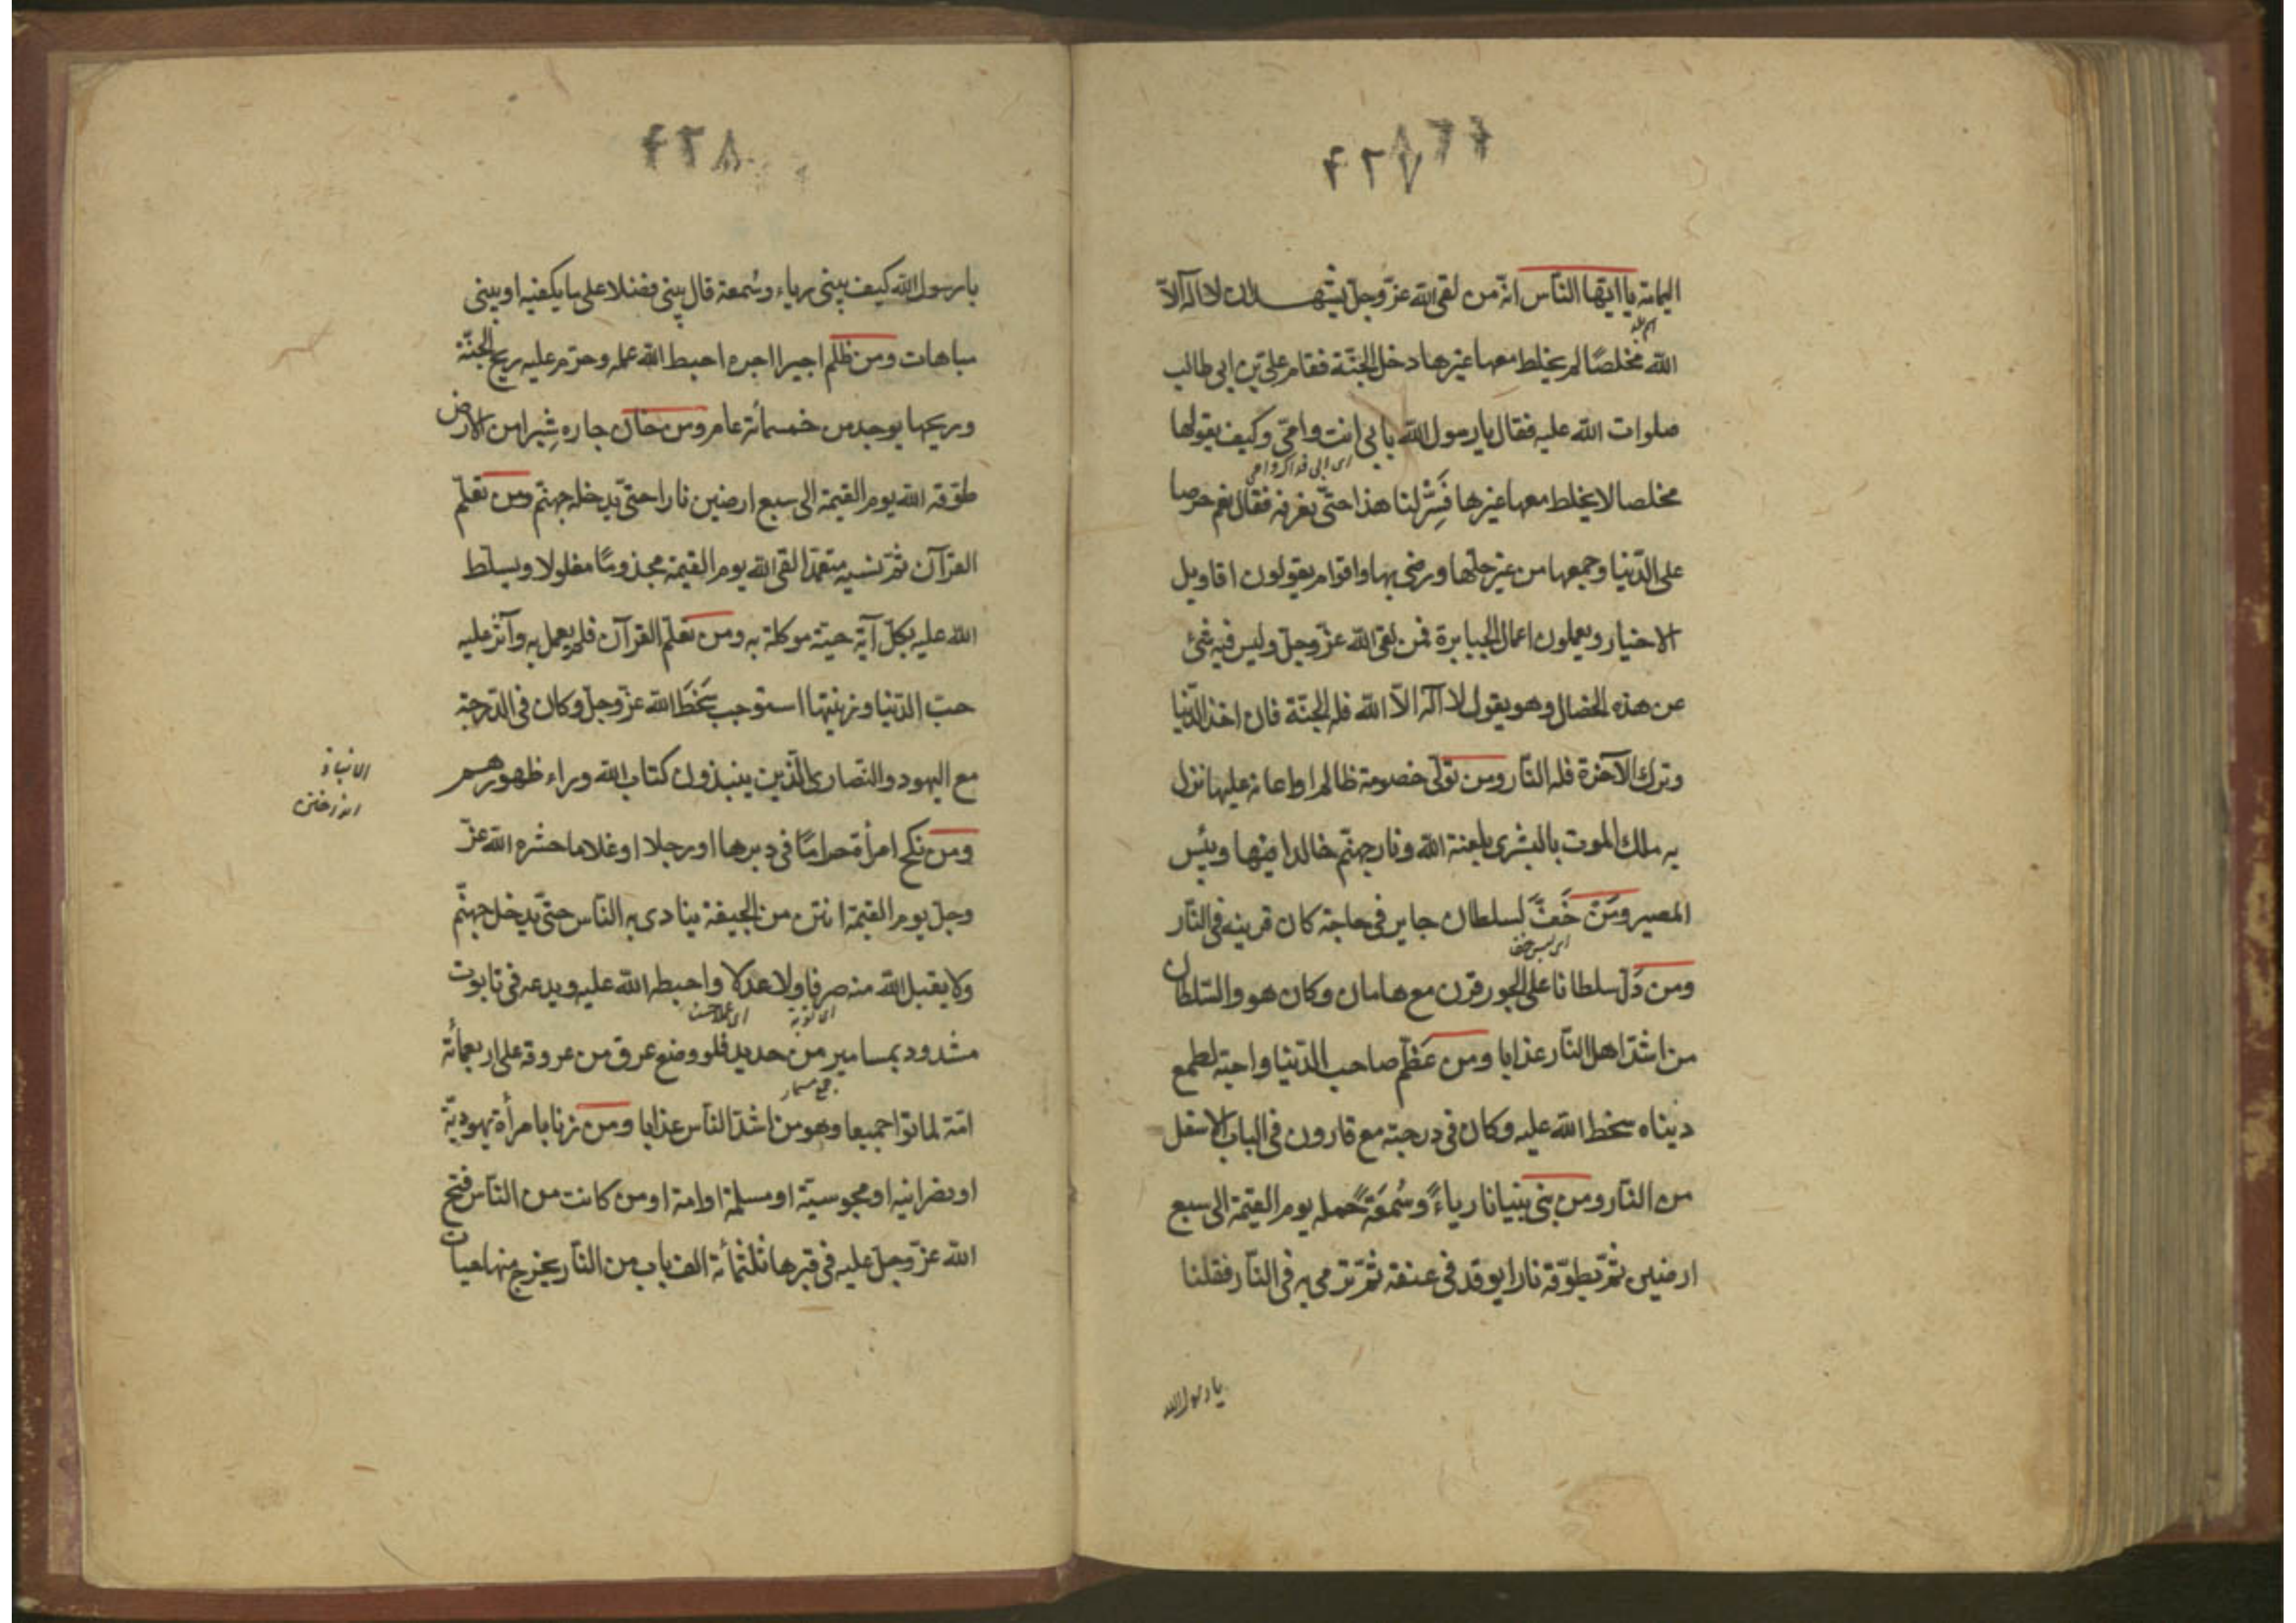 ۴۲۷
اليمامة يا ايها الناس انّه من لقى الله عزّ وجلّ يشهد ان لا اله الّا
الله مخلصًا لم يخلط معها غيرها دخل الجنّة فقام علي بن ابي طالب
صلوات الله عليه فقال يا رسول الله بابي انت وامّي وكيف يقولها
اى ابى فداك وامى
مخلصا لا يخلط معها غيرها فَسِّر لنا هذا حتّى نعرفه فقال نعم حرصا
على الدّنيا وجمعها من غير حلّها ورضى بها واقوام يقولون اقاويل
الاخيار ويعملون اعمال الجبابرة فمن لقى الله عزّ وجلّ وليس فيه شئ
من هذه الخصال وهو يقول لا اله الّا الله فله الجنّة فان اخذ الدّنيا
وترك الآخرة فله النّار ومن تولّى خصومة ظالم او اعانه عليها نزل
به ملك الموت بالبشرى بلعنة الله ونار جهنّم خالدا فيها وبئس
المصير ومَن خَفَّ لسلطان جاير في حاجة كان قرينه في النّار
ومن دَلّ سلطانا على الجور قرن مع هامان وكان هو والسّلطان
من اشدّ اهل النّار عذابا ومن عَظّم صاحب الدّنيا واحبّه لطمع
ديناه سخط الله عليه وكان في درجته مع قارون في الباب الاسفل
من النّار ومن بنى بنيانا رياءً وسُمعَةً حمله يوم القيمة الى سبع
ارضين ثمّ يطوّقه نارا يوقد في عنقه ثمّ ترمى به في النّار فقلنا
يا رسول الله
۴۲۸
يا رسول الله كيف يبنى رياء وسُمعة قال يبنى فضلا على ما يكفيه او يبنى
مباهات ومن ظلم اجيرا اجره احبط الله عمله وحرّم عليه ريح الجنّة
وريحها يوجد من خمسمائة عام ومن خان جاره شِبرا من الارض
طوّقه الله يوم القيمة الى سبع ارضين نارا حتّى يدخله جهنّم ومن تعلّم
القرآن ثمّ نسيه متعمّدا لقى الله يوم القيمة مجذومًا مغلولا ويسلّط
الله عليه بكلّ آية حيّة موكلة به ومن تعلّم القرآن فلم يعمل به وآثر عليه
حبّ الدّنيا وزينتها استوجب سَخَطَ الله عزّ وجلّ وكان في الدّرجة
مع اليهود والنّصارى الّذين ينبذون كتاب الله وراء ظهورهم
الانباذ
انداختن
ومن نكح امرأة حرامًا في دبرها او رجلا او غلاما حشره الله عزّ
وجلّ يوم القيمة انتن من الجيفة ينادى به النّاس حتّى يدخل جهنّم
ولا يقبل الله منه صرفا ولا عدلا واحبطه الله عليه ويدعه في تابوت
اى توبة
مشدود بمسامير من حديد فلو وضع عرق من عروقه على اربعمائة
جمع مسمار
امّة لماتوا جميعا وهو من اشدّ النّاس عذابا ومن زنا بامرأة يهوديّة
او نصرانيه او مجوسيّة او مسلمة او امة او من كانت من النّاس فتح
الله عزّ وجلّ عليه في قبرها ثلثمائة الف باب من النّار يخرج منها حيات